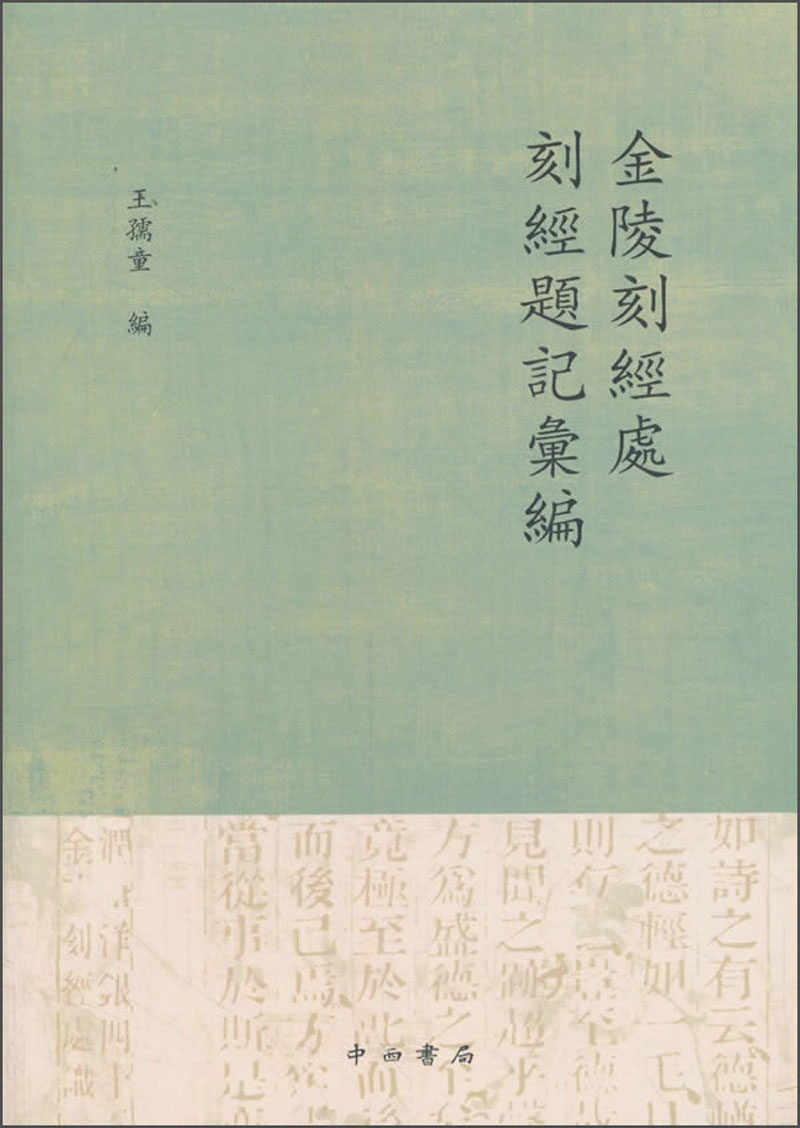 金陵刻經處
刻經題記彙編
玉孺童 編
如詩之有云德輶
之德輕如一毛
則 至德
見聞之 超乎
方爲盛德之至
竟極至於此而後
而後已焉方
當從事於斯是
潤 洋銀四十
金 刻經處識
中西書局